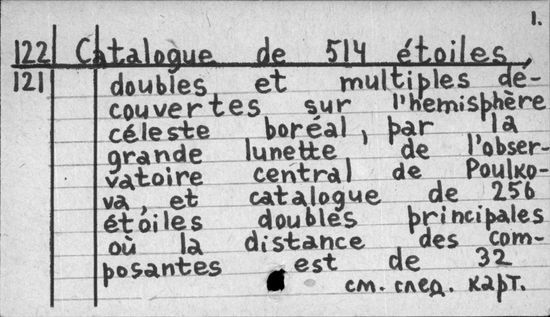 1.
122 Catalogue de 514 étoiles,
121 doubles et multiples dé-
couvertes sur l'hemisphère
céleste boréal, par la
grande lunette de l'obser-
vatoire central de Poulko-
va, et catalogue de 256
étoiles doubles principales
où la distance des com-
posantes est de 32
см. след. карт.